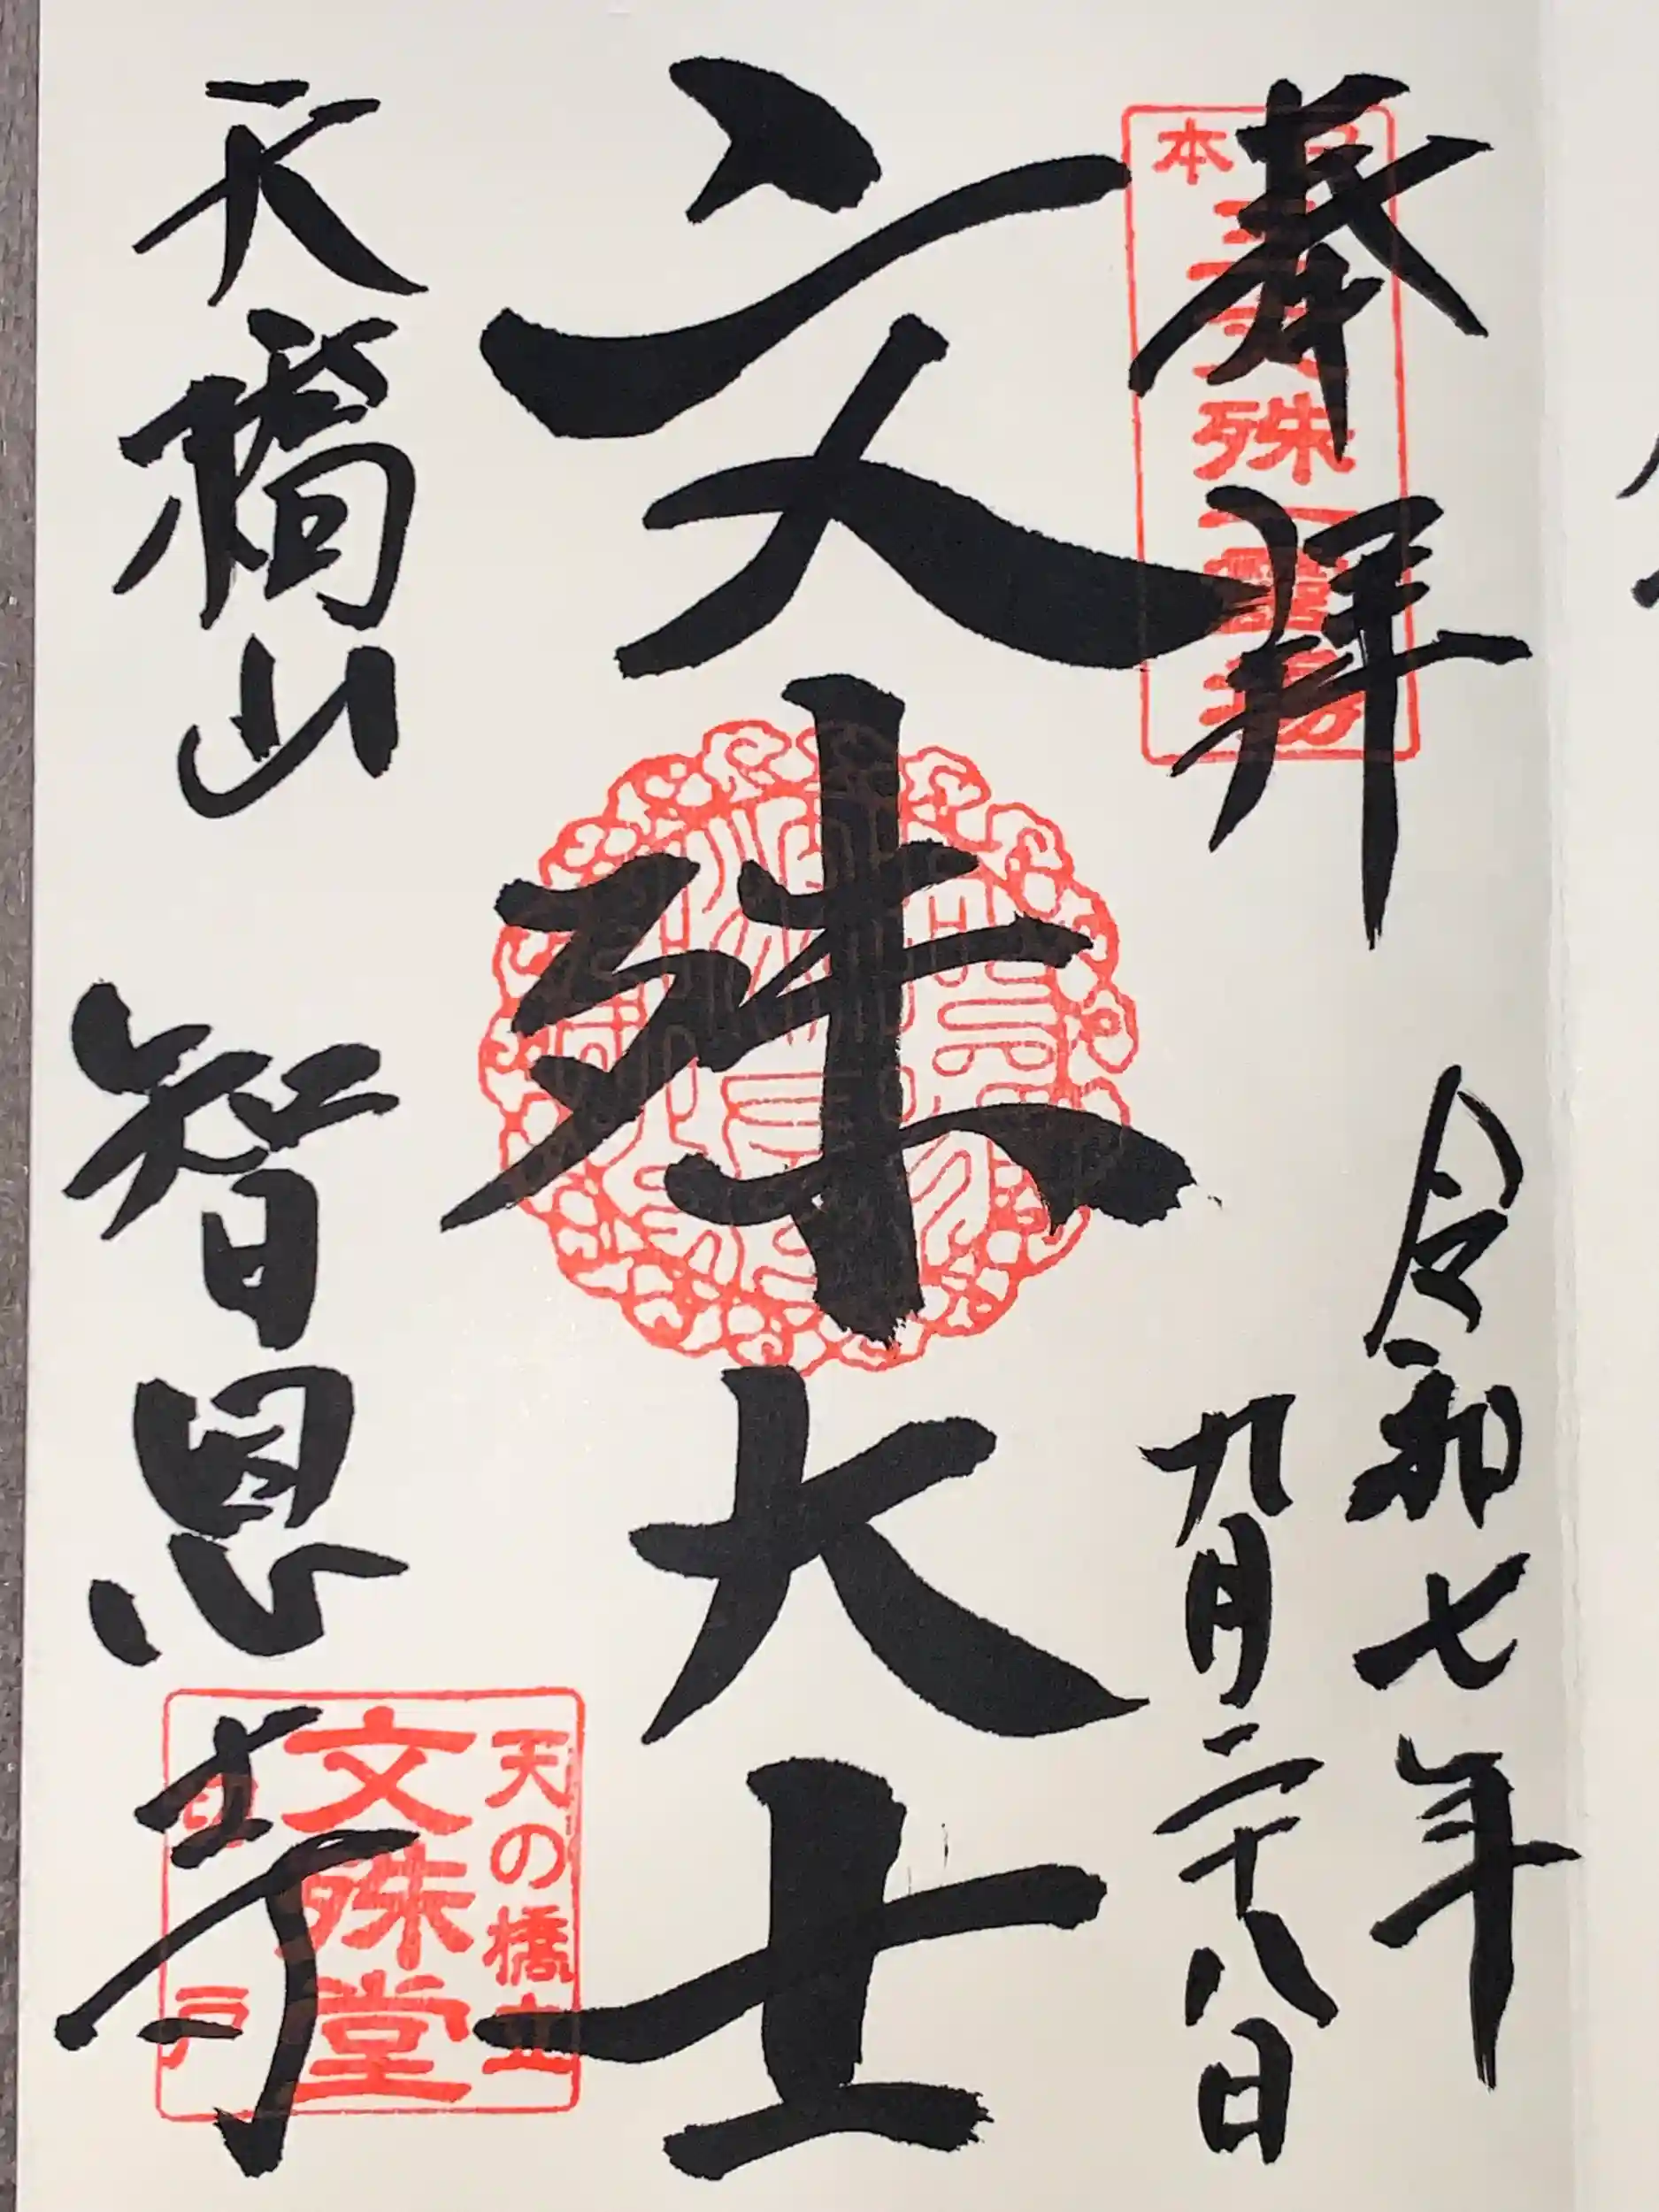 奉拝
令和七年
九月二十八日
文殊大士
天橋山 智恩寺
日本三文殊第一霊場
天の橋立
文殊堂
切戸